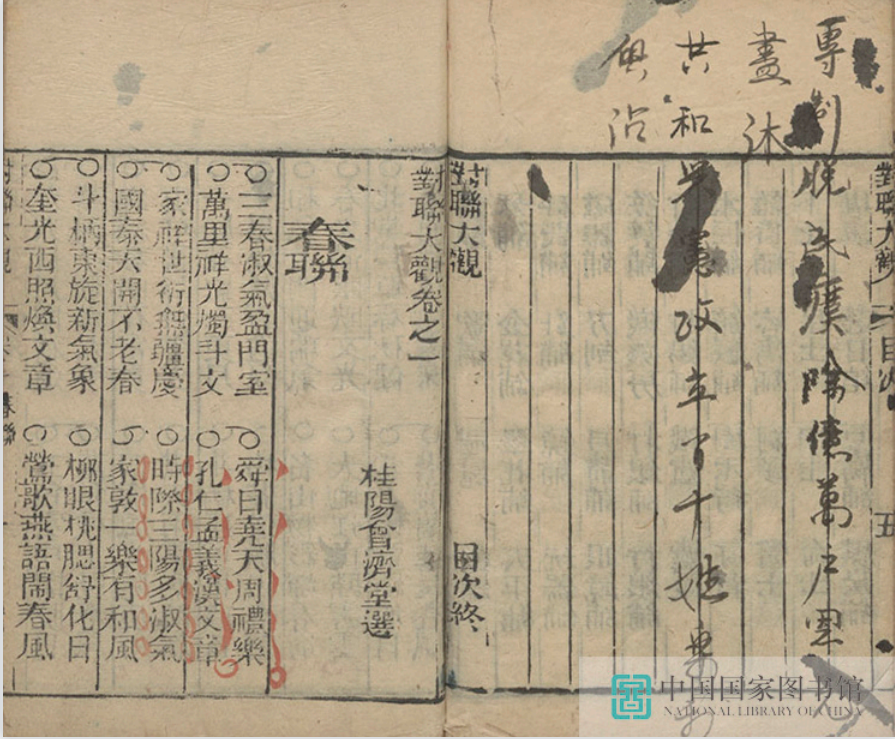 專制脫民瘼除億萬戶里
盡沐
共和興憲政立百千姓
俱沾
對聯大觀
目次
五
對聯大觀
目次終
對聯大觀卷之一
桂陽會濟堂選
春聯
○三春淑氣盈門室
○舜日堯天周禮樂
○萬里祥光燭斗文
○孔仁孟義漢文章
○家祥世衍無疆慶
○時際三陽多淑氣
○國泰天開不老春
○家敦一樂有和風
○斗柄東旋新氣象
○柳眼桃腮舒化日
○奎光西照煥文章
○鶯歌燕語鬧春風
對聯大觀
春聯
中国国家图书馆
NATIONAL LIBRARY OF CHINA